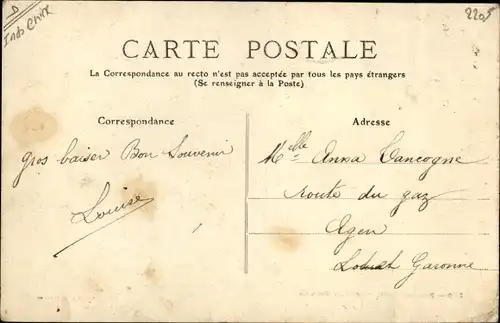 Indo Chine
2205
CARTE POSTALE
La Correspondance au recto n'est pas acceptée par tous les pays étrangers
(Se renseigner à la Poste)
Correspondance
Adresse
gros baiser Bon Souvenir
Louise
Melle Anna Cancogne
route du gaz
Agen
Lot et Garonne